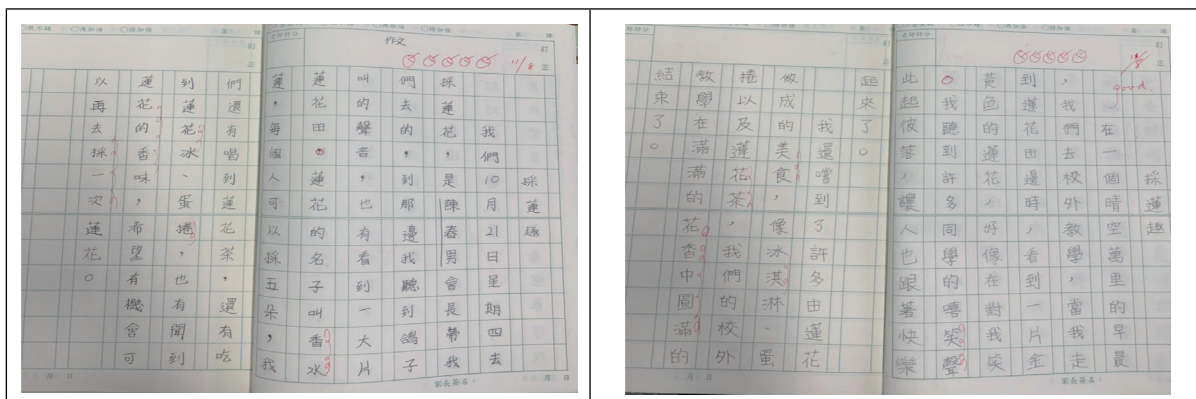 作文
11/8
採蓮趣
我們10月21日星期四去
採蓮花,是陳春男會長帶我
們去的,到那邊我聽到鴿子
叫的聲音,也有看到一大片
蓮花田。蓮花的名子叫香水
蓮,每個人可以採五朵,我
們還有喝到蓮花茶,還有吃
到蓮花冰、蛋捲,也有聞到
蓮花的香味,希望有機會可
以再去採一次蓮花。
家長簽名:
月 日
老師評分
訂正
good.
採蓮趣
在一個晴空萬里的早晨
,我們去校外教學,當我走
到蓮花田邊時,看到一片金
黃色的蓮花,好像在對我笑
。我聽到許多同學的嘻笑聲
此起彼落,讓人也跟著快樂
起來了。
我還嚐到了許多由蓮花
做成的美食,像冰淇淋、蛋
捲以及蓮花茶,我們的校外
教學在滿滿的花香中圓滿的
結束了。
家長簽名:
月 日